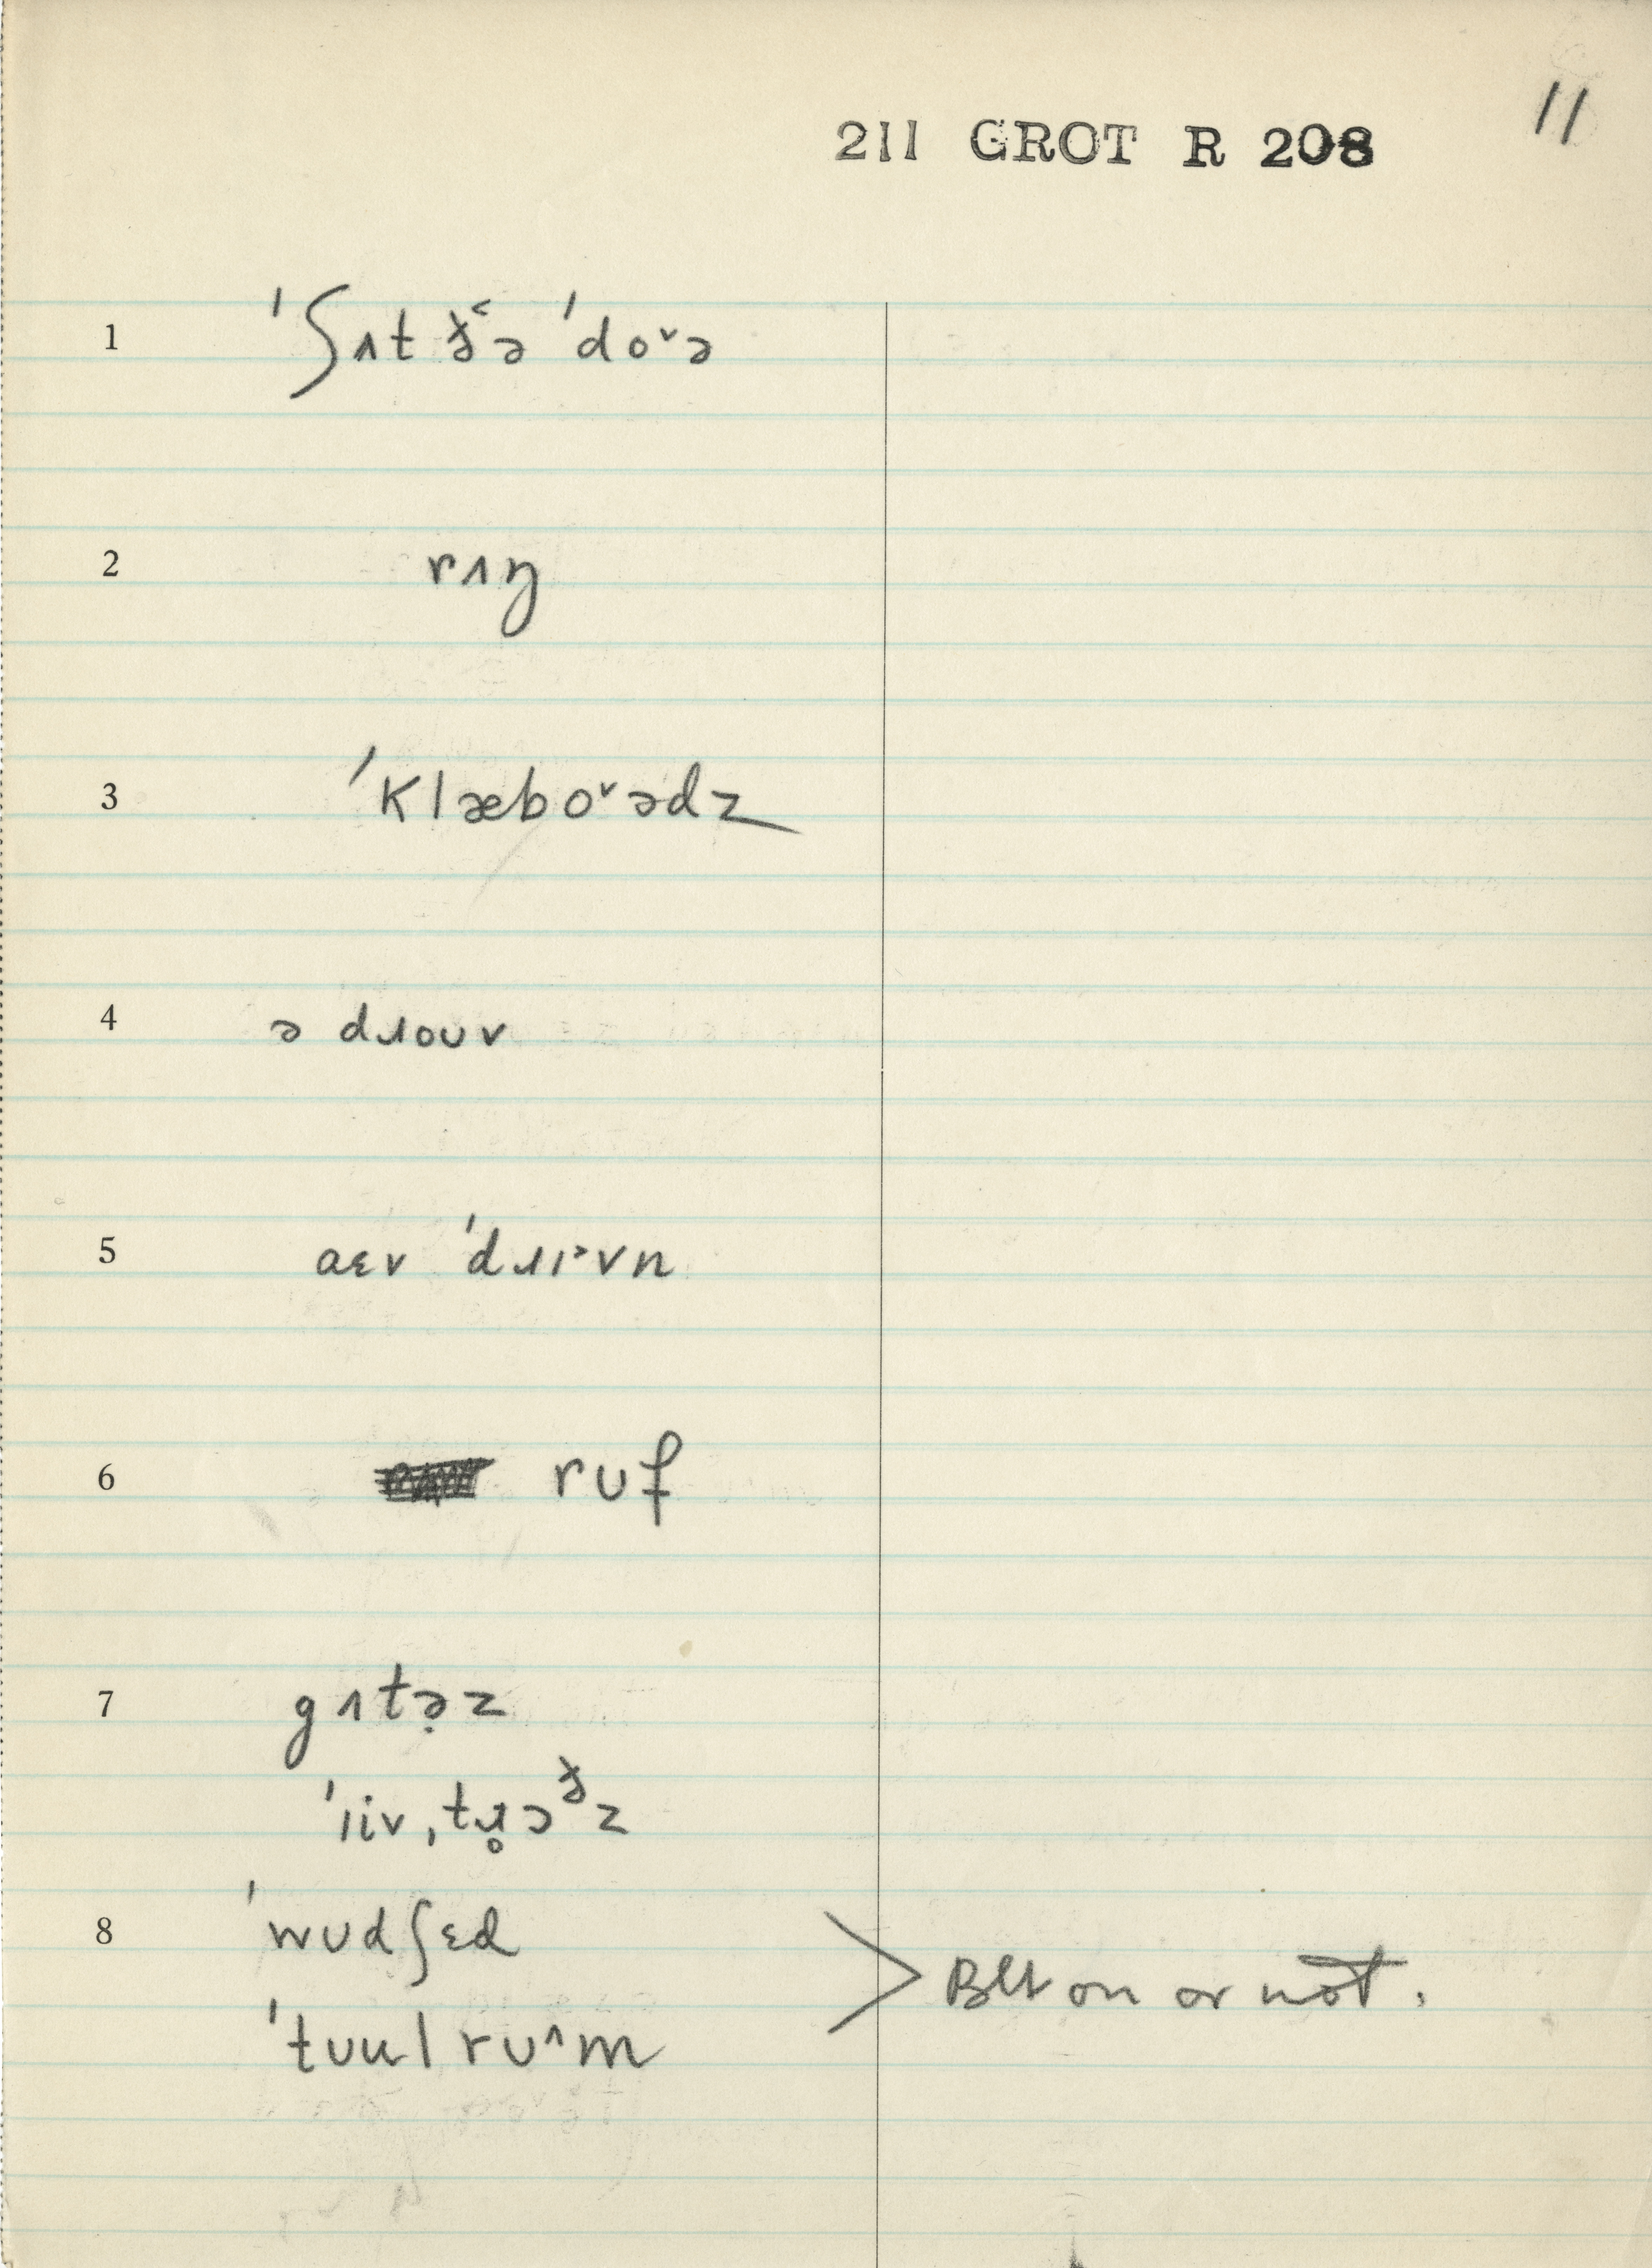 211 GROT R 208
11
1 ˈʃɪt ð˂ə ˈdo˅ə
2 rɪŋ
3 ˈklæbo˅ədz
4 ə dɹoʊv
5 aɛv ˈdɹɪ˃vn
6 rʊf
7 gɪtə̣z
ˈiiv ˌtɹ̥ɔᶞz
8 ˈwʊdʃɛd
ˈtʊul rʊ˄m
> Blt on or not.